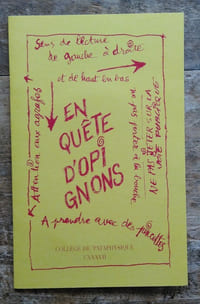 Sens de lecture
de gauche à droite
et de haut en bas
Attention aux agrafes
EN
QUÊTE
D'OPI
GNONS
ne pas porter à la bouche
NE PAS JETER SUR LA
VOIE PUBLIQUE
A prendre avec des pincettes
COLLÈGE DE 'PATAPHYSIQUE